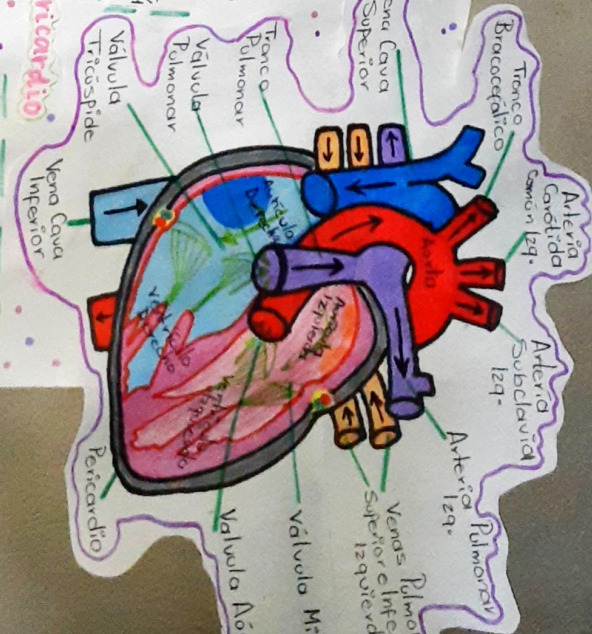 ricardio
Válvula
Tricúspide
Válvula
Pulmonar
Tronco
Pulmonar
ena Cava
Superior
Tronco
Bracocefálico
Arteria
Carótida
común Izq.
Arteria
Subclavia
Izq.
Arteria Pulmonar
Izq.
Venas Pulmo
Superior e Infe
Izquierd
Válvula Mi
Valvula Aó
Pericardio
Vena Cava
Inferior
Aorta
Aurícula
Derecha
Ventrículo
Derecho